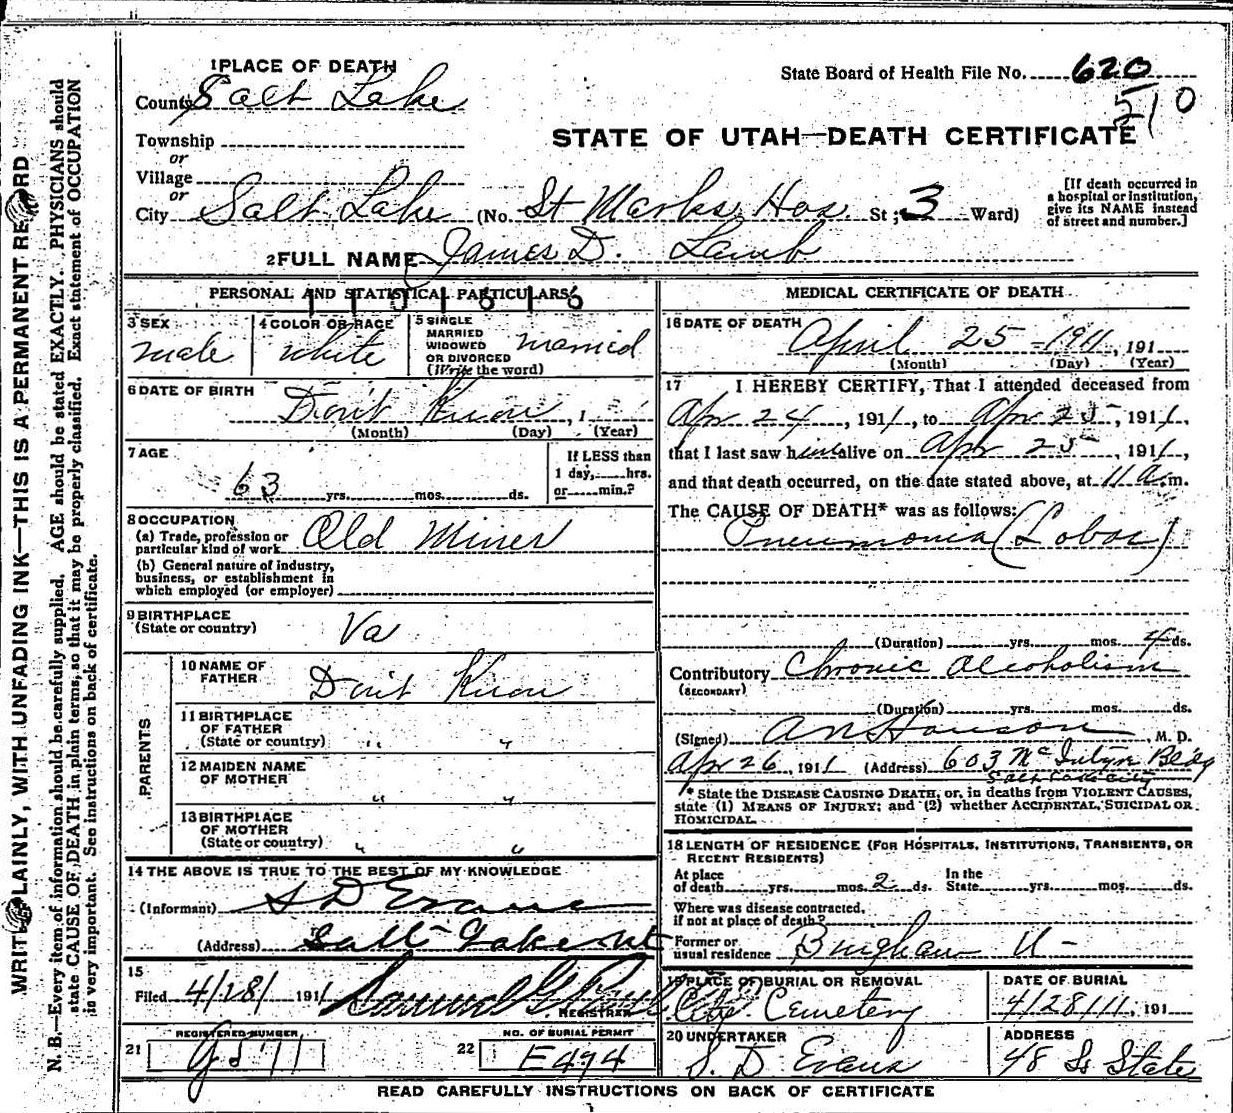 WRITE PLAINLY, WITH UNFADING INK—THIS IS A PERMANENT RECORD
N. B.—Every item of information should be carefully supplied. AGE should be stated EXACTLY. PHYSICIANS should
state CAUSE OF DEATH in plain terms, so that it may be properly classified. Exact statement of OCCUPATION
is very important. See instructions on back of certificate.
1 PLACE OF DEATH
State Board of Health File No. 620
510
County Salt Lake
STATE OF UTAH—DEATH CERTIFICATE
Township
or
Village
or
City Salt Lake (No. St Marks Hos. St; 3 Ward)
[If death occurred in
a hospital or institution,
give its NAME instead
of street and number.]
2 FULL NAME James D. Lamb
PERSONAL AND STATISTICAL PARTICULARS
3 SEX male
4 COLOR OR RACE white
5 SINGLE
MARRIED
WIDOWED
OR DIVORCED
(Write the word) married
6 DATE OF BIRTH Don't Know, 1
(Month) (Day) (Year)
7 AGE
63 yrs. mos. ds.
If LESS than
1 day, hrs.
or min.?
8 OCCUPATION
(a) Trade, profession or
particular kind of work Old Miner
(b) General nature of industry,
business, or establishment in
which employed (or employer)
9 BIRTHPLACE
(State or country) Va
PARENTS
10 NAME OF
FATHER Don't Know
11 BIRTHPLACE
OF FATHER
(State or country) " "
12 MAIDEN NAME
OF MOTHER " "
13 BIRTHPLACE
OF MOTHER
(State or country) " "
14 THE ABOVE IS TRUE TO THE BEST OF MY KNOWLEDGE
(Informant) S D Evans
(Address) Salt Lake Ut
15
Filed 4/28/ 1911
REGISTRER
REGISTERED NUMBER
21
NO. OF BURIAL PERMIT
22 E494
MEDICAL CERTIFICATE OF DEATH
16 DATE OF DEATH April 25 - 1911, 191
(Month) (Day) (Year)
17 I HEREBY CERTIFY, That I attended deceased from
Apr 24, 1911, to Apr 25, 1911,
that I last saw him alive on Apr 25, 1911,
and that death occurred, on the date stated above, at 11 a.m.
The CAUSE OF DEATH* was as follows:
Pneumonia (Lobar)
(Duration) yrs. mos. 4 ds.
Contributory Chronic Alcoholism
(SECONDARY)
(Duration) yrs. mos. ds.
(Signed) A N Hanson, M. D.
Apr 26, 1911 (Address) 603 McIntyre Bldg
Salt Lake City
* State the DISEASE CAUSING DEATH, or, in deaths from VIOLENT CAUSES,
state (1) MEANS OF INJURY; and (2) whether ACCIDENTAL, SUICIDAL OR
HOMICIDAL.
18 LENGTH OF RESIDENCE (FOR HOSPITALS, INSTITUTIONS, TRANSIENTS, OR
RECENT RESIDENTS)
At place
of death yrs. mos. 2 ds.
In the
State yrs. mos. ds.
Where was disease contracted,
if not at place of death?
Former or
usual residence Bingham U-
19 PLACE OF BURIAL OR REMOVAL
City Cemetery
DATE OF BURIAL
4/28/11, 191
20 UNDERTAKER
S. D. Evans
ADDRESS
48 So State
READ CAREFULLY INSTRUCTIONS ON BACK OF CERTIFICATE